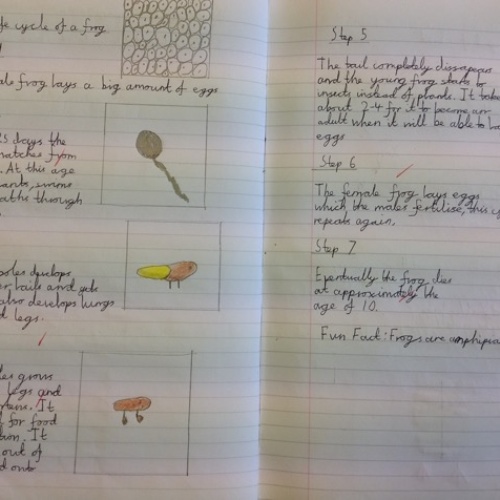 cycle of a frog
frog lays a big amount of eggs
25 days the
hatches from
. At this age
swims
through
develops
tails and
also develops lungs
legs.
grows
legs and
It
for food
It
out of
out
Step 5
The tail completely dissapears
and the young frog starts to
insects instead of plants. It takes
about 2-4 for it to become an
adult when it will be able to
eggs
Step 6
The female frog lays eggs
which the males fertilise, this
repeats again.
Step 7
Eventually the frog dies
at approximately the
age of 10.
Fun Fact: Frogs are